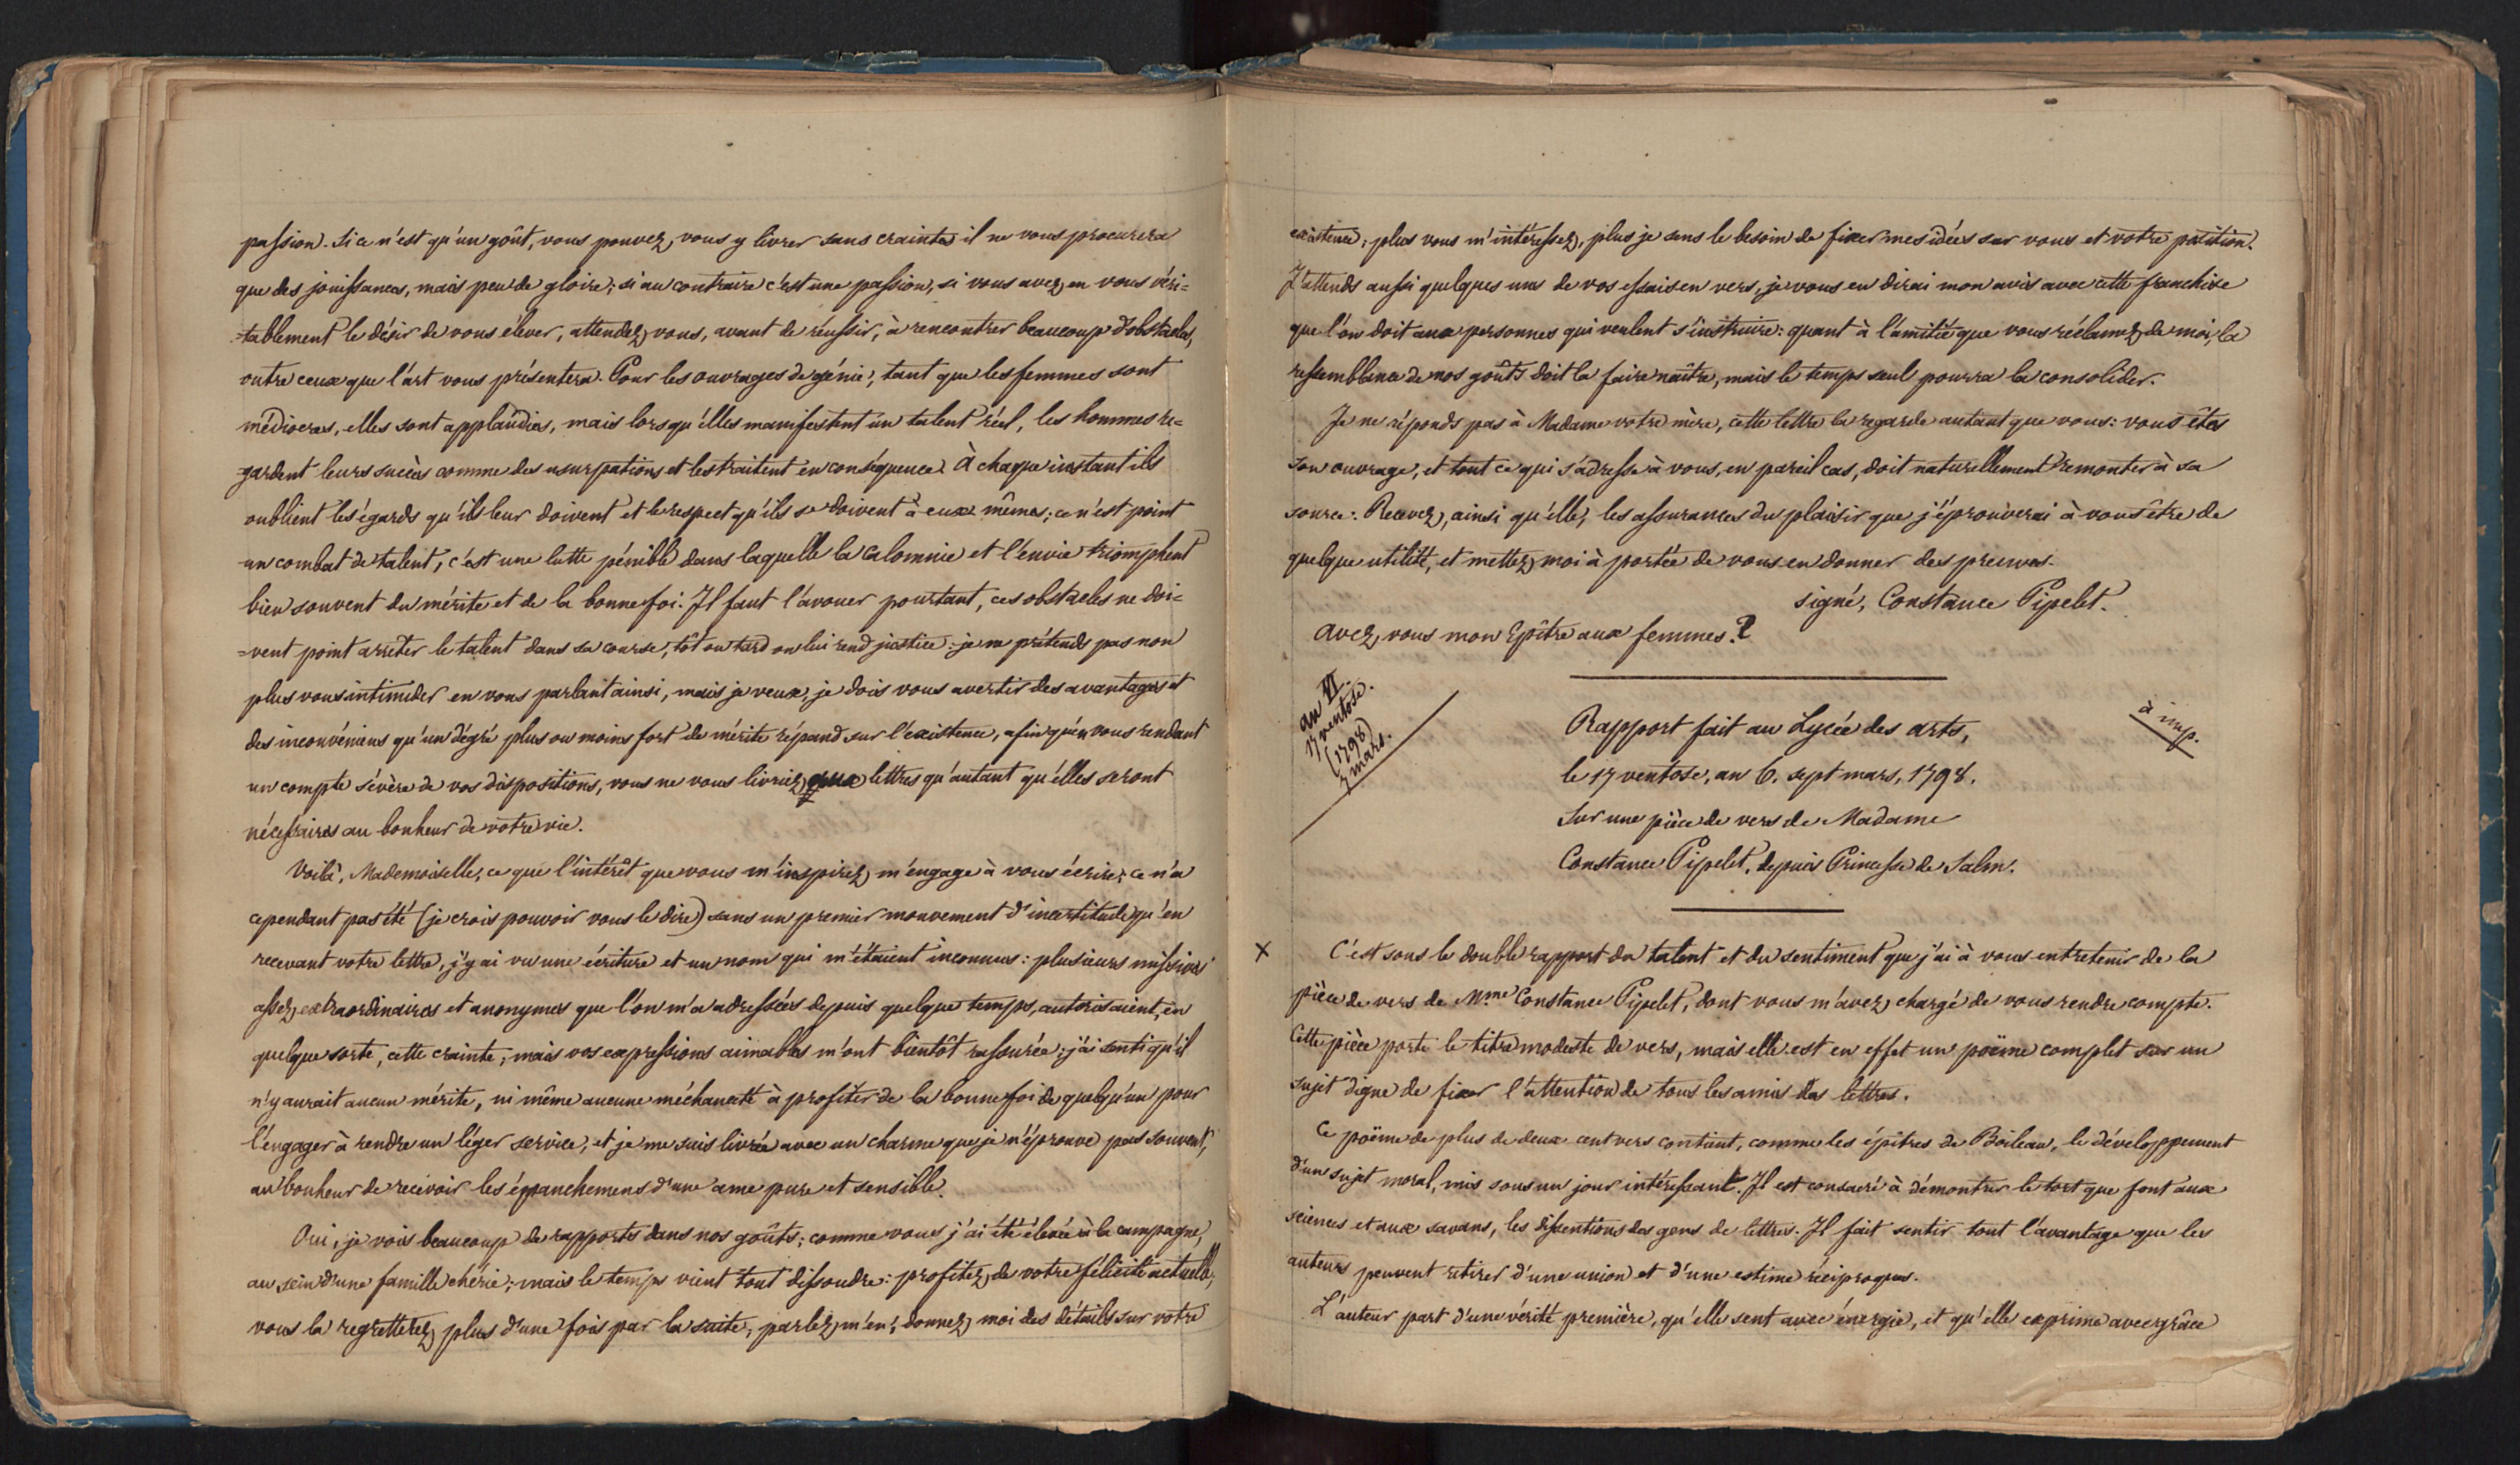 passion. Si ce n'est qu'un goût, vous pouvez vous y livrer sans crainte, il ne vous procurera
que des jouissances, mais peu de gloire; si au contraire c'est une passion, si vous avez en vous véri=
=tablement le désir de vous élever, attendez vous, avant de réussir, à rencontrer beaucoup d'obstacles,
outre ceux que l'art vous présentera. Pour les ouvrages de génie, tant que les femmes sont
médiocres, elles sont applaudies, mais lorsqu'elles manifestent un talent réel, les hommes re=
gardent leurs succès comme des usurpations et les traitent en conséquence. À chaque instant ils
oublient les égards qu'ils leur doivent et le respect qu'ils se doivent à eux mêmes; ce n'est point
un combat de talent, c'est une lutte pénible dans laquelle la calomnie et l'envie triomphent
bien souvent du mérite et de la bonne foi. Il faut l'avouer pourtant, ces obstacles ne doi=
=vent point arrêter le talent dans sa course, tôt ou tard on lui rend justice: je ne prétends pas non
plus vous intimider en vous parlant ainsi, mais je veux, je dois vous avertir des avantages et
des inconvéniens qu'un dégré plus ou moins fort de mérite répand sur l'existence, afin qu'en vous rendant
un compte sévère de vos dispositions, vous ne vous livriez aux lettres qu'autant qu'elles seront
nécessaires au bonheur de votre vie.
Voilà, Mademoiselle, ce que l'intérêt que vous m'inspirez m'engage à vous écrire; ce n'a
cependant pas été (je crois pouvoir vous le dire) sans un premier mouvement d'incertitude qu'en
recevant votre lettre, j'y ai vu une écriture et un nom qui m'étaient inconnus: plusieurs missives
assez extraordinaires et anonymes que l'on m'a adressées depuis quelque temps, autorisaient, en
quelque sorte, cette crainte; mais vos expressions aimables m'ont bientôt rassurée; j'ai senti qu'il
n'y aurait aucun mérite, ni même aucune méchanceté à profiter de la bonne foi de quelqu'un pour
l'engager à rendre un léger service, et je me suis livrée avec un charme que je n'éprouve pas souvent,
au bonheur de recevoir les épanchemens d'une ame pure et sensible.
Oui, je vois beaucoup de rapports dans nos goûts; comme vous j'ai été élevée à la campagne,
au sein d'une famille chérie; mais le temps vient tout dissoudre: profitez de votre félicité actuelle,
vous la regretterez plus d'une fois par la suite; parlez m'en; donnez moi des détails sur votre
existence; plus vous m'intéressez, plus je sens le besoin de fixer mes idées sur vous et votre position.
J'attends aussi quelques uns de vos essais en vers, je vous en dirai mon avis avec cette franchise
que l'on doit aux personnes qui veulent s'instruire: quant à l'amitié que vous réclamez de moi, la
ressemblance de nos goûts doit la faire naître, mais le temps seul pourra la consolider.
Je ne réponds pas à Madame votre mère, cette lettre la regarde autant que vous: vous êtes
son ouvrage, et tout ce qui s'adresse à vous, en pareil cas, doit naturellement remonter à sa
source. Recevez, ainsi qu'elle, les assurances du plaisir que j'éprouverai à vous être de
quelque utilité, et mettez moi à portée de vous en donner des preuves.
signé, Constance Pipelet.
avez vous mon Epître aux femmes?
an VI.
17 ventose.
(1798)
7 mars.
à imp.
Rapport fait au Lycée des arts,
le 17 ventose, an 6. sept mars, 1798.
Sur une pièce de vers de Madame
Constance Pipelet, depuis Princesse de Salm.
X C'est sous le double rapport du talent et du sentiment que j'ai à vous entretenir de la
pièce de vers de Mme Constance Pipelet, dont vous m'avez chargé de vous rendre compte.
Cette pièce porte le titre modeste de vers, mais elle est en effet un poëme complet sur un
sujet digne de fixer l'attention de tous les amis des lettres.
Ce poëme de plus de deux cent vers contient, comme les épitres de Boileau, le développement
d'un sujet moral, mis sous un jour intéressant. Il est consacré à démontrer le tort que font aux
sciences et aux savans, les dissentions des gens de lettres. Il fait sentir tout l'avantage que les
auteurs peuvent retirer d'une union et d'une estime réciproques.
L'auteur part d'une vérité première, qu'elle sent avec énergie, et qu'elle exprime avec grâce